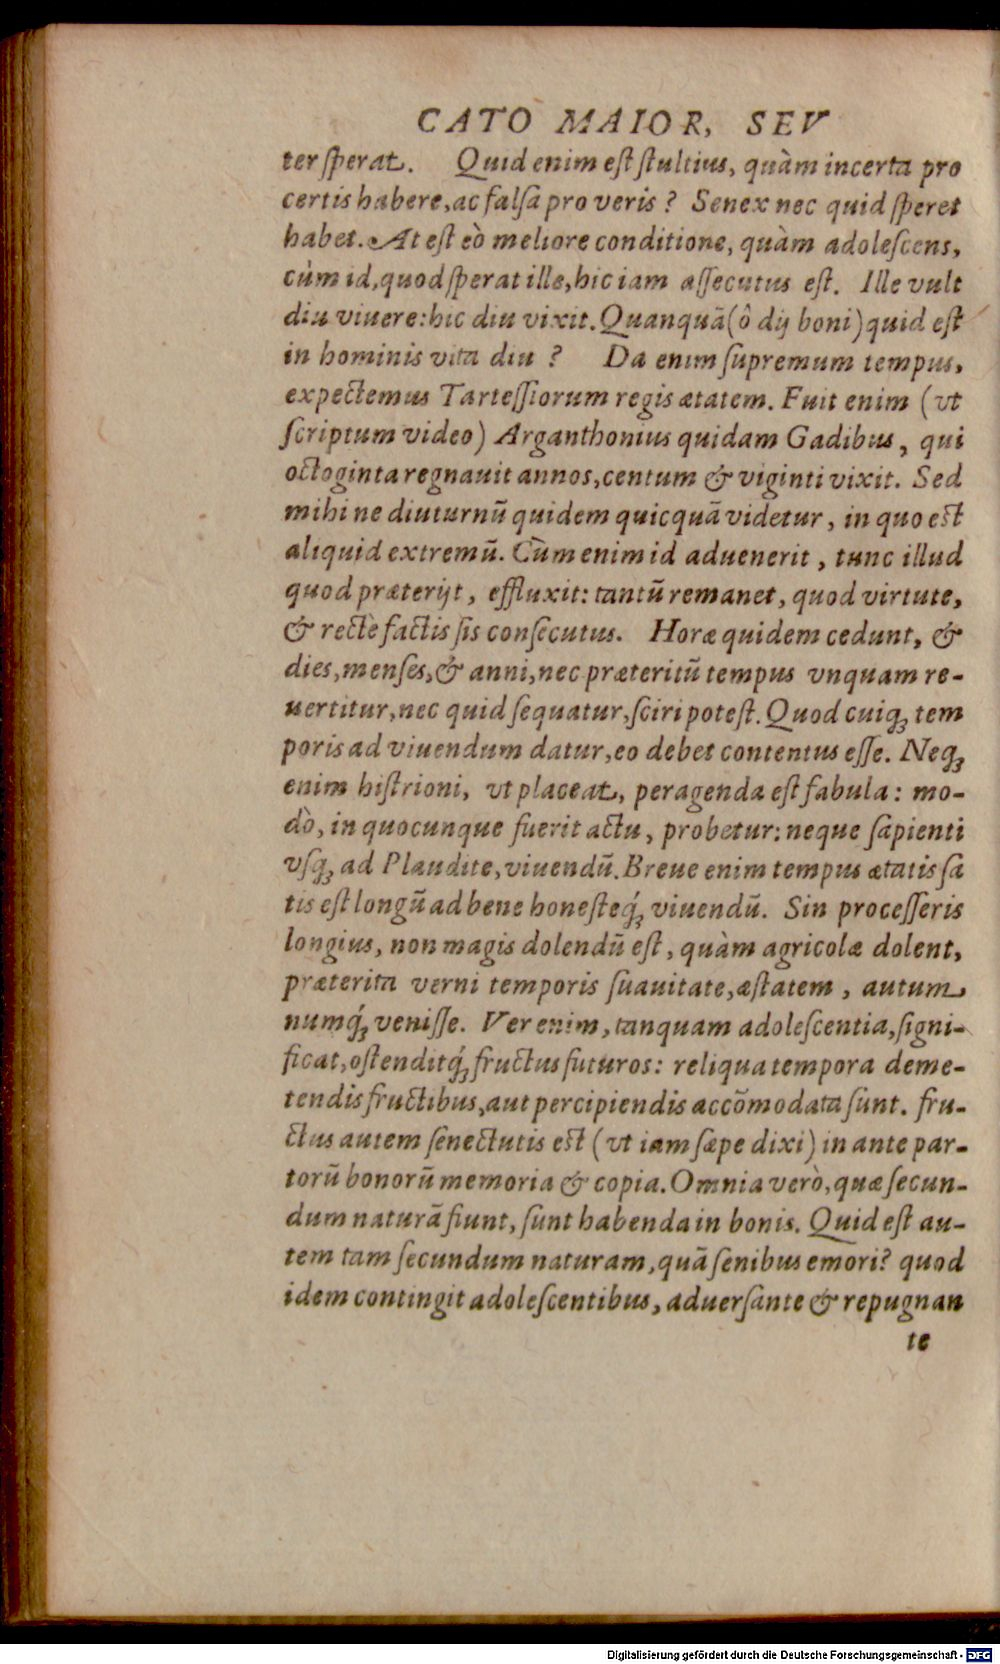 CATO MAIOR, SEV
ter ſperat. Quid enim eſt ſtultius, quàm incerta pro
certis habere, ac falſa pro veris? Senex nec quid ſperet
habet. At eſt eò meliore conditione, quàm adoleſcens,
cùm id, quod ſperat ille, hic iam aſſecutus eſt. Ille vult
diu viuere: hic diu vixit. Quanquã (ô dij boni) quid eſt
in hominis vita diu? Da enim ſupremum tempus,
expectemus Tarteſſiorum regis ætatem. Fuit enim (vt
ſcriptum video) Arganthonius quidam Gadibus, qui
octoginta regnauit annos, centum & viginti vixit. Sed
mihi ne diuturnũ quidem quicquã videtur, in quo eſt
aliquid extremũ. Cùm enim id aduenerit, tunc illud
quod præterijt, effluxit: tantũ remanet, quod virtute,
& rectè factis ſis conſecutus. Horæ quidem cedunt, &
dies, menſes, & anni, nec præteritũ tempus vnquam re-
uertitur, nec quid ſequatur, ſciri poteſt. Quod cuiqꝫ tem
poris ad viuendum datur, eo debet contentus eſſe. Neqꝫ
enim hiſtrioni, vt placeat, peragenda eſt fabula: mo-
dò, in quocunque fuerit actu, probetur: neque ſapienti
vſqꝫ ad Plaudite, viuendũ. Breue enim tempus ætatis ſa
tis eſt longũ ad bene honeſteq́ꝫ viuendũ. Sin proceſſeris
longius, non magis dolendũ eſt, quàm agricolæ dolent,
præterita verni temporis ſuauitate, æſtatem, autum
numq́ꝫ veniſſe. Ver enim, tanquam adoleſcentia, ſigni-
ficat, oſtenditq́ꝫ fructus futuros: reliqua tempora deme-
tendis fructibus, aut percipiendis accõmodata ſunt. fru-
ctus autem ſenectutis eſt (vt iam ſæpe dixi) in ante par-
torũ bonorũ memoria & copia. Omnia verò, quæ ſecun-
dum naturã fiunt, ſunt habenda in bonis. Quid eſt au-
tem tam ſecundum naturam, quã ſenibus emori? quod
idem contingit adoleſcentibus, aduerſante & repugnan
te
Digitalisierung gefördert durch die Deutsche Forschungsgemeinschaft - DFG